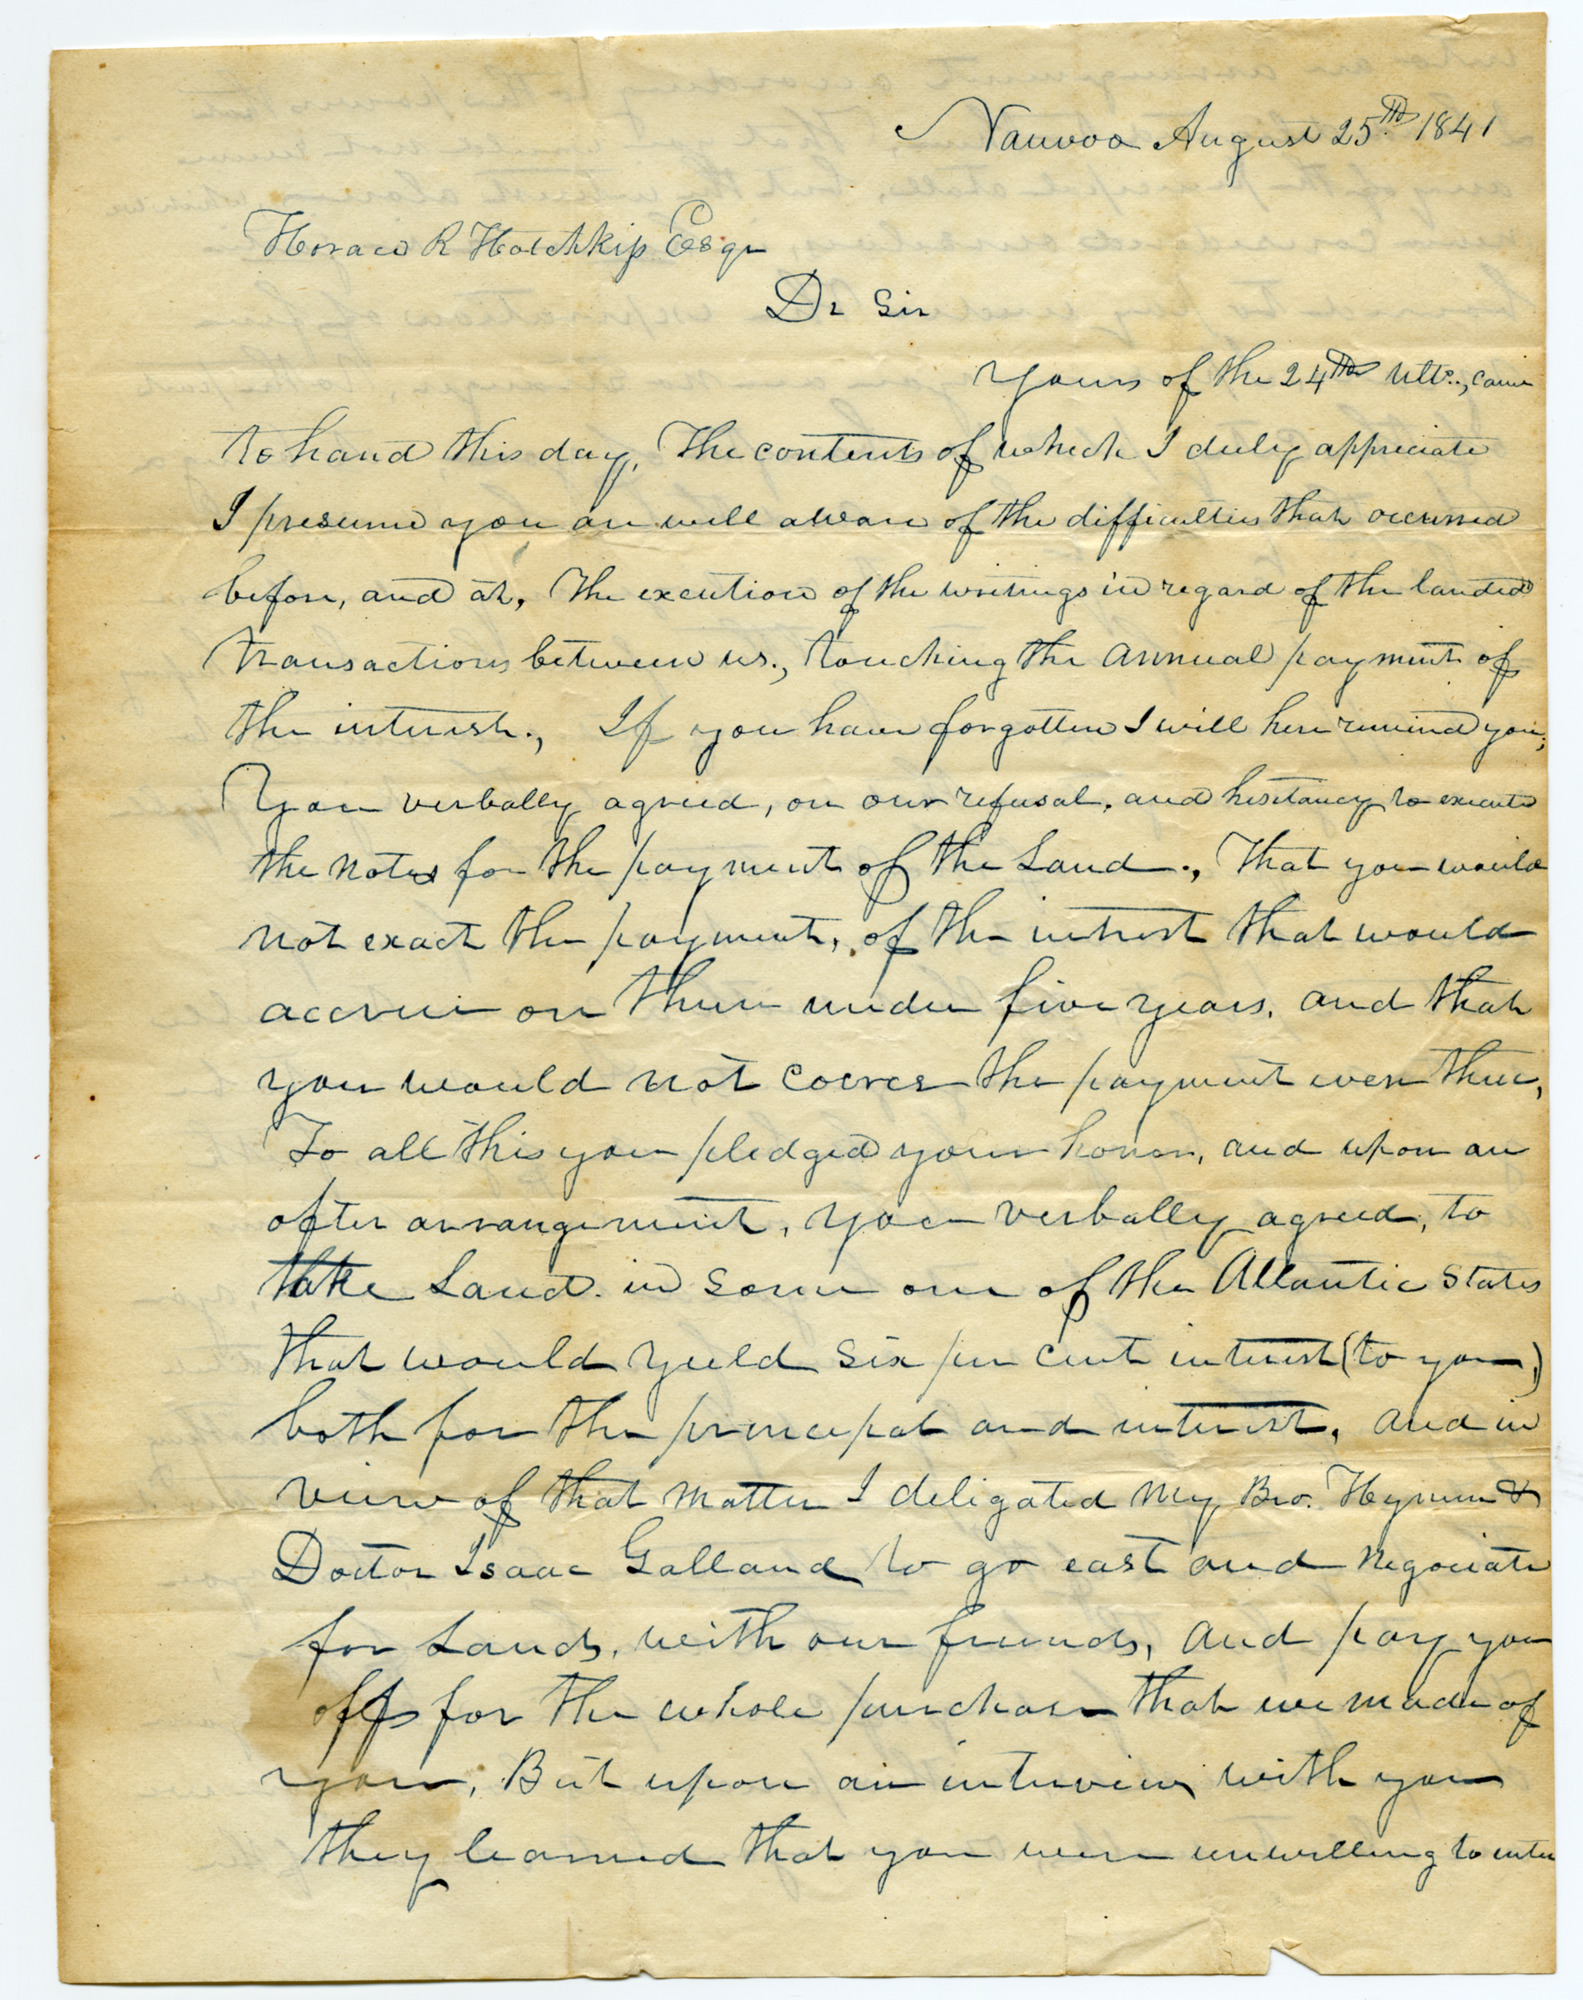 Nauvoo August 25th 1841
Horace R Hotchkiss Esqr
Dr Sir
Yours of the 24th Ulto., came
to hand this day, The contents of which I duly appreciate
I presume you are well aware of the difficulties that occurred
before, and at, The execution of the writings in regard of the landed
transactions between us., touching the annual payment of
the interest., If you have forgotten I will here remind you;
You verbally agreed, on our refusal, and hesitancy to execute
the notes for the payment of the Land., That you would
not exact the payment, of the interest that would
accrue on them under five years, and that
you would not coerce the payment even then,
To all this you pledged your honor, and upon an
after arrangement, you verbally agreed, to
take Land in some one of the Atlantic States
that would yeild six per cent interest (to you,)
both for the principal and interest, and in
view of that matter I deligated my Bro. Hyrum &
Doctor Isaac Galland to go east and negociate
for Lands, with our friends, and pay you
off for the whole purchase that we made of
you, But upon an interview with you
they learned that you were unwilling to enter